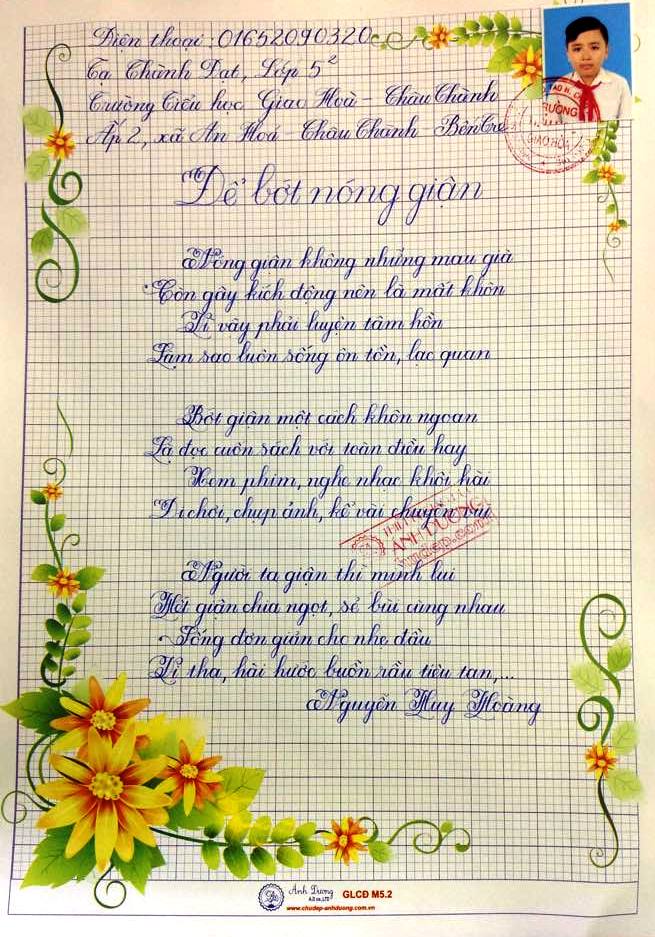 Điện thoại: 01652090320
Tạ Chành Đạt, Lớp 5²
Trường Tiểu học Giao Hoà - Châu Thành
Ấp 2, xã An Hoá - Châu Thành - Bến Tre
TRƯỜNG
GIAO HÒA
Để bớt nóng giận
Nóng giận không những mau già
Còn gây kích động nên là mất khôn
Vì vậy phải luyện tâm hồn
Làm sao luôn sống ôn tồn, lạc quan
Bớt giận một cách khôn ngoan
Là đọc cuốn sách với toàn điều hay
Xem phim, nghe nhạc khôi hài
Đi chơi, chụp ảnh, kể vài chuyện vui
ÁNH DƯƠNG
Người ta giận thì mình lui
Hết giận chia ngọt, sẻ bùi cùng nhau
Sống đơn giản cho nhẹ đầu
Vị tha, hài hước buồn rầu tiêu tan,...
Nguyễn Huy Hoàng
Ánh Dương
A.D co.,LTD
GLCĐ M5.2
www.chudep-anhduong.com.vn